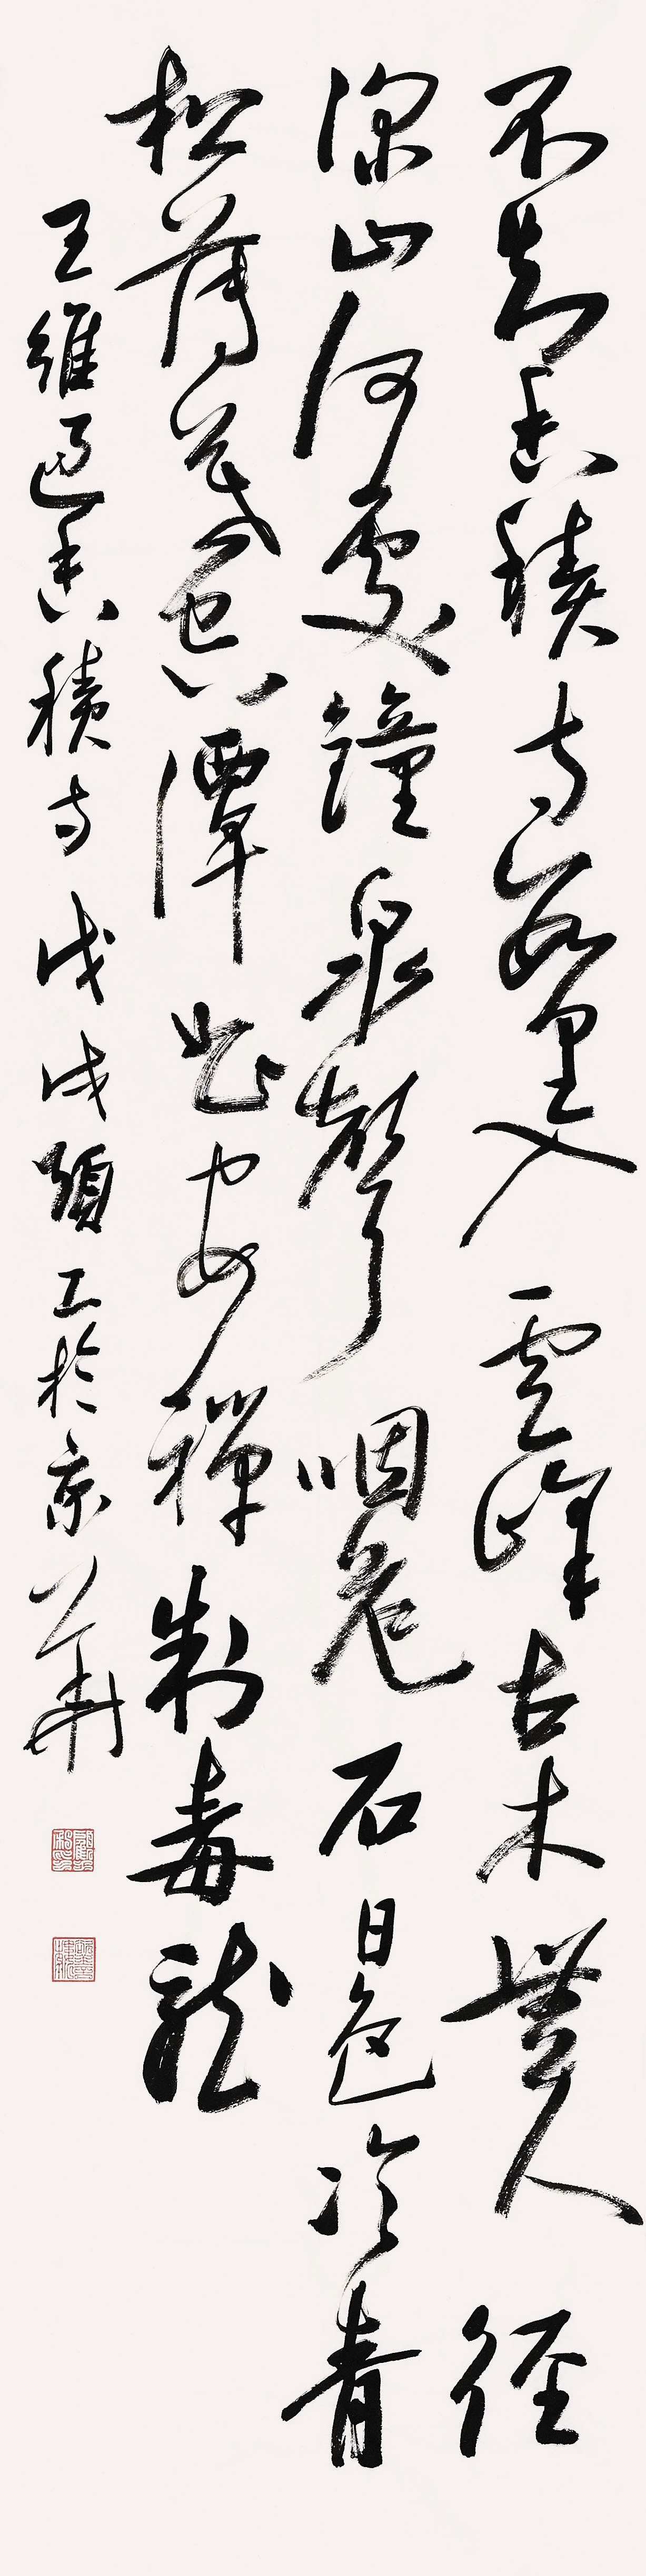 不知香積寺數里入雲峰古木無人徑
深山何處鐘泉聲咽危石日色冷青
松薄暮空潭曲安禪制毒龍
王維過香積寺戊戌顧工於京華